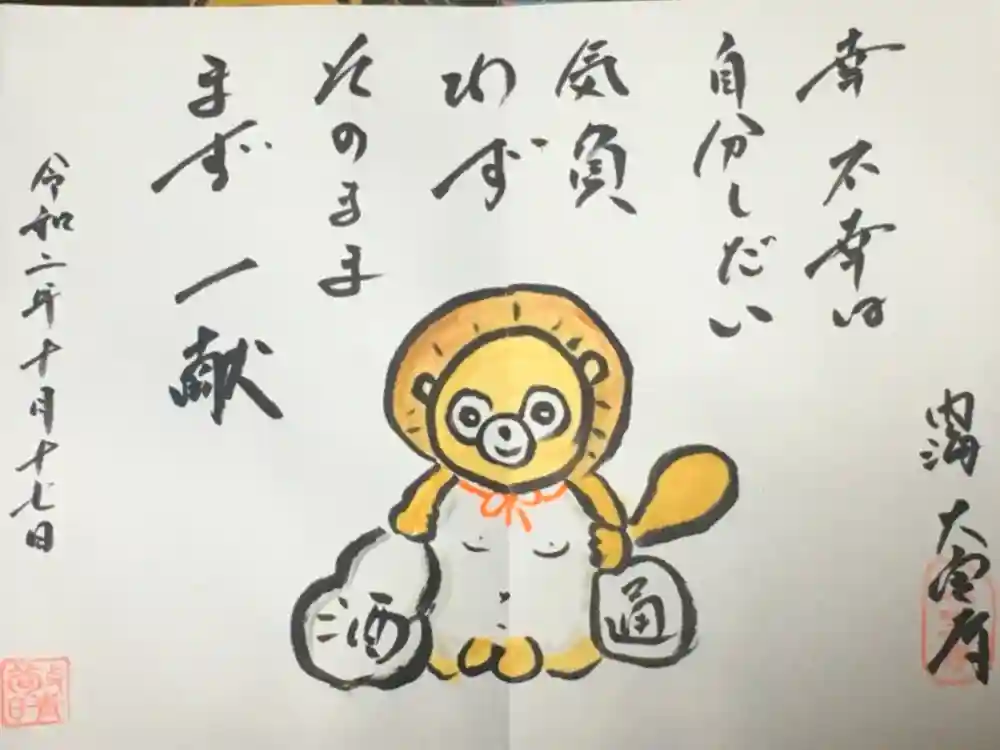 幸不幸は
自分しだい
気負
わず
そのまま
まず一献
令和二年十月十七日
酒
通